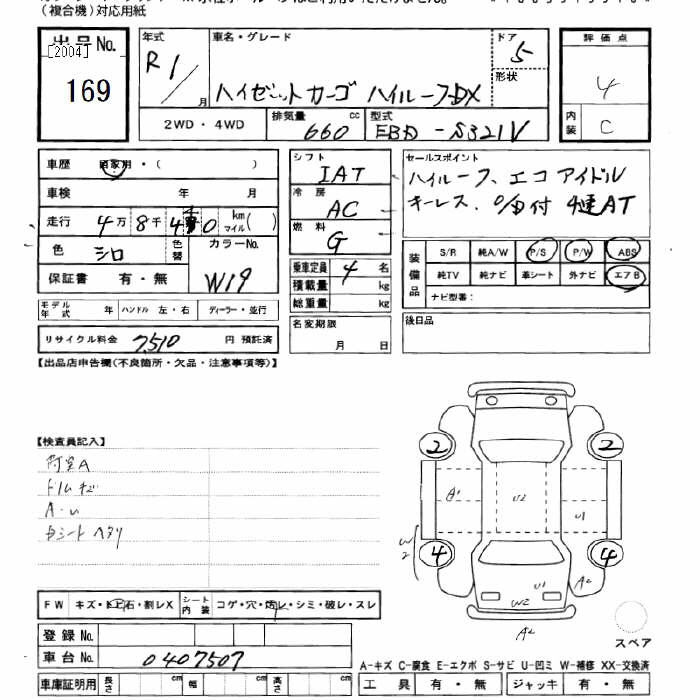 （複合機）対応用紙
出品No.
[2004]
169
年式
R1/月
車名・グレード
ハイゼットカーゴ ハイルーフDX
ドア
5
形状
2WD・4WD
排気量
660 cc
型式
EBD-S321V
評価点
4
内装
C
車歴 自家用・（ ）
車検 年 月
走行 4万8千 0 km マイル( )
色 シロ
色替
カラーNo.
W19
保証書 有・無
モデル年式 年 ハンドル 左・右 ディーラー・並行
リサイクル料金 7,510 円 預託済
シフト
IAT
冷房
AC
燃料
G
乗車定員 4 名
積載量 kg
総重量 kg
名変期限
月 日
セールスポイント
ハイルーフ、エコアイドル
キーレス、 4速AT
装備品
S/R 純A/W P/S P/W ABS
純TV 純ナビ 革シート 外ナビ エアB
ナビ型番：
後日品
【出品店申告欄(不良箇所・欠品・注意事項等)】
【検査員記入】
荷室A
A・U
シート ヘタリ
2 2
A1 U2 U1
W2
4 4
U1 A2
W2
A2
スペア
FW キズ・トビ石・割レX
シート内装 コゲ・穴・汚レ・シミ・破レ・スレ
登録No.
車台No. 0407507
車庫証明用 長さ cm 幅 cm 高さ cm
A-キズ C-腐食 E-エクボ S-サビ U-凹ミ W-補修 XX-交換済
工具 有・無 ジャッキ 有・無